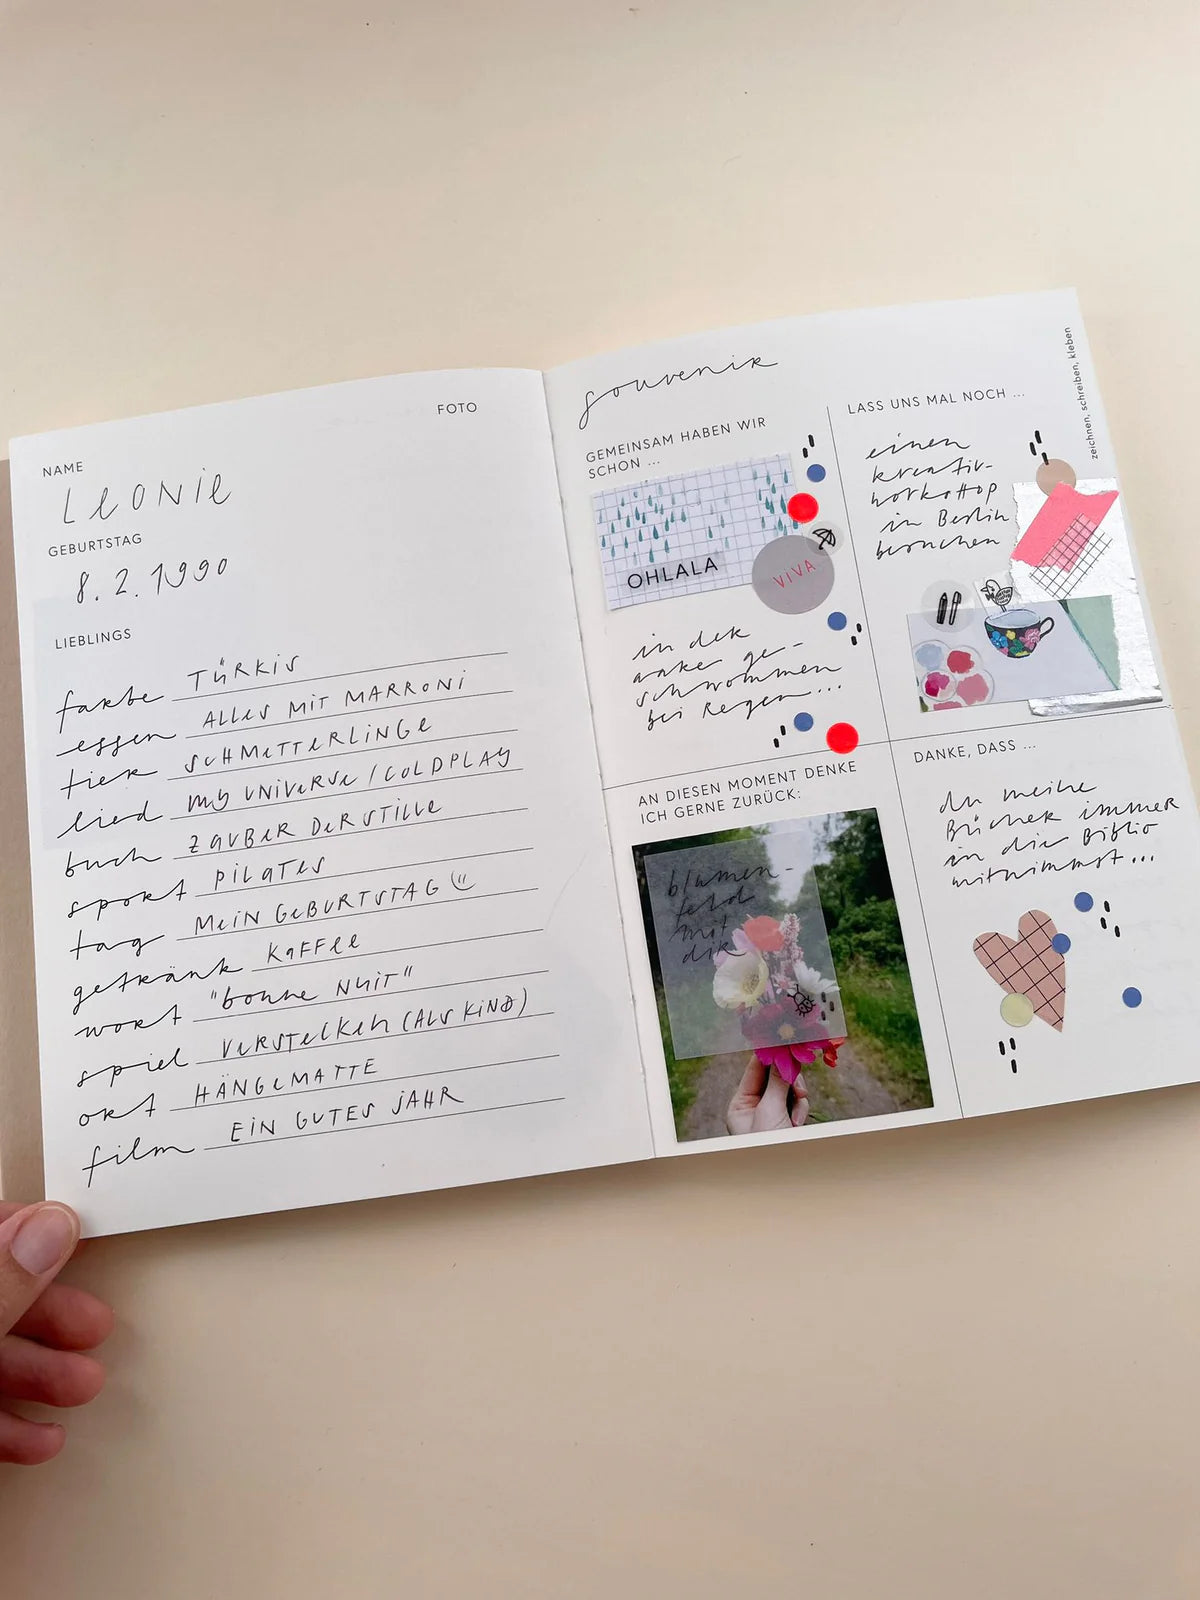 FOTO
NAME
LEONIE
GEBURTSTAG
8.2.1990
LIEBLINGS
farbe TÜRKIS
essen ALLES MIT MARRONI
tier SCHMETTERLINGE
lied MY UNIVERSE / COLDPLAY
buch ZAUBER DER STILLE
sport PILATES
tag MEIN GEBURTSTAG
getränk KAFFEE
wort "bonne NUIT"
spiel VERSTELKEN (ALS KIND)
ort HÄNGEMATTE
film EIN GUTES JAHR
souvenir
GEMEINSAM HABEN WIR
SCHON ...
OHLALA
VIVA
in der
aare ge-
schwommen
bei Regen...
LASS UNS MAL NOCH ...
einen
kreativ-
workshop
in Berlin
besuchen
zeichnen, schreiben, kleben
AN DIESEN MOMENT DENKE
ICH GERNE ZURÜCK:
blumen-
feld
mit
dir
DANKE, DASS ...
du meine
Bücher immer
in die Biblio
mitnimmst...